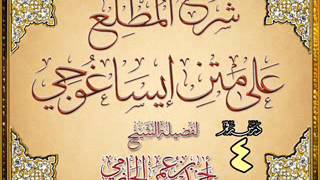 شرح المطلع
على متن إيساغوجي
لفضيلة الشيخ
درس رقم
٤
الحازمي